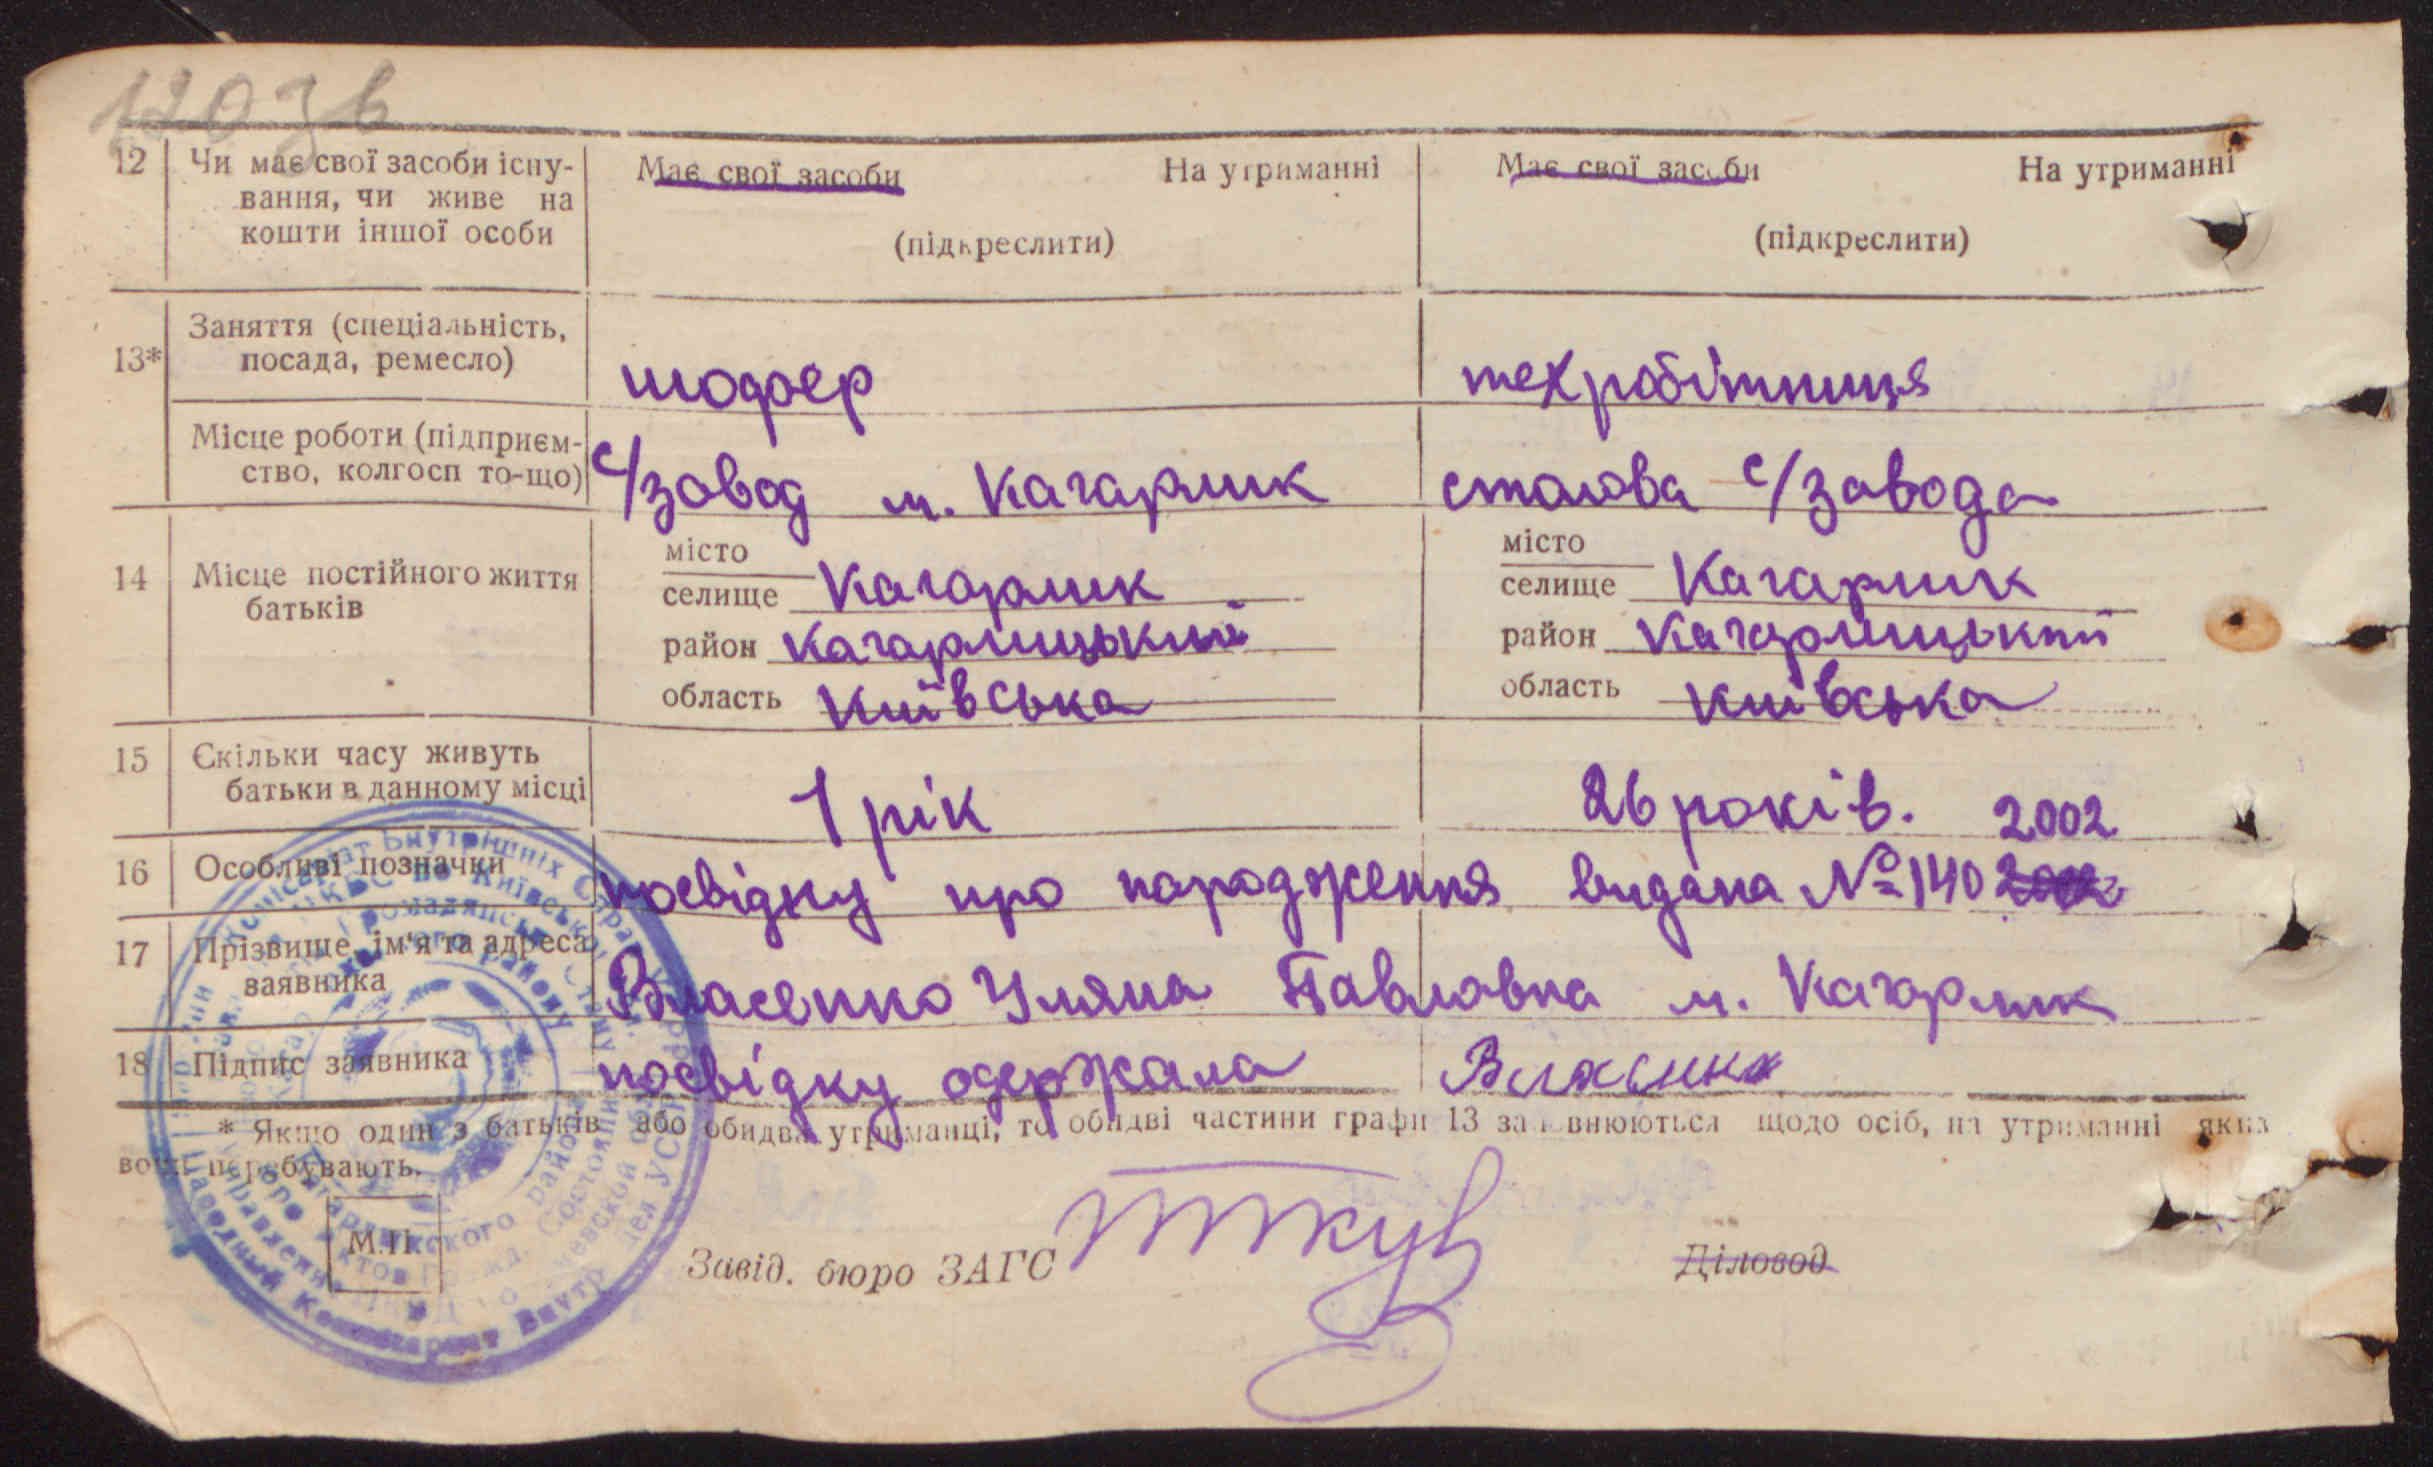 120зв
12 Чи має свої засоби існу- Має свої засоби На утриманні Має свої засоби На утриманні
вання, чи живе на
кошти іншої особи (підкреслити) (підкреслити)
Заняття (спеціальність,
13* посада, ремесло) шофер техробітниця
Місце роботи (підприєм-
ство, колгосп то-що) с/завод м. Кагарлик столова с/завода
місто місто
14 Місце постійного життя селище Кагарлик селище Кагарлик
батьків
район Кагарлицький район Кагарлицький
область Київська область Київська
15 Скільки часу живуть
батьки в данному місці 1 рік 26 років. 2002
16 Особливі позначки посвідку про народження видана № 140
17 Прізвище, ім'я та адреса
заявника Власенко Уляна Павловна м. Кагарлик
18 Підпис заявника посвідку одержала Власенко
* Якщо один з батьків або обидва утриманці, то обидві частини графи 13 заповнюються щодо осіб, на утриманні яких
вони перебувають.
М.П.
Завід. бюро ЗАГС Діловод